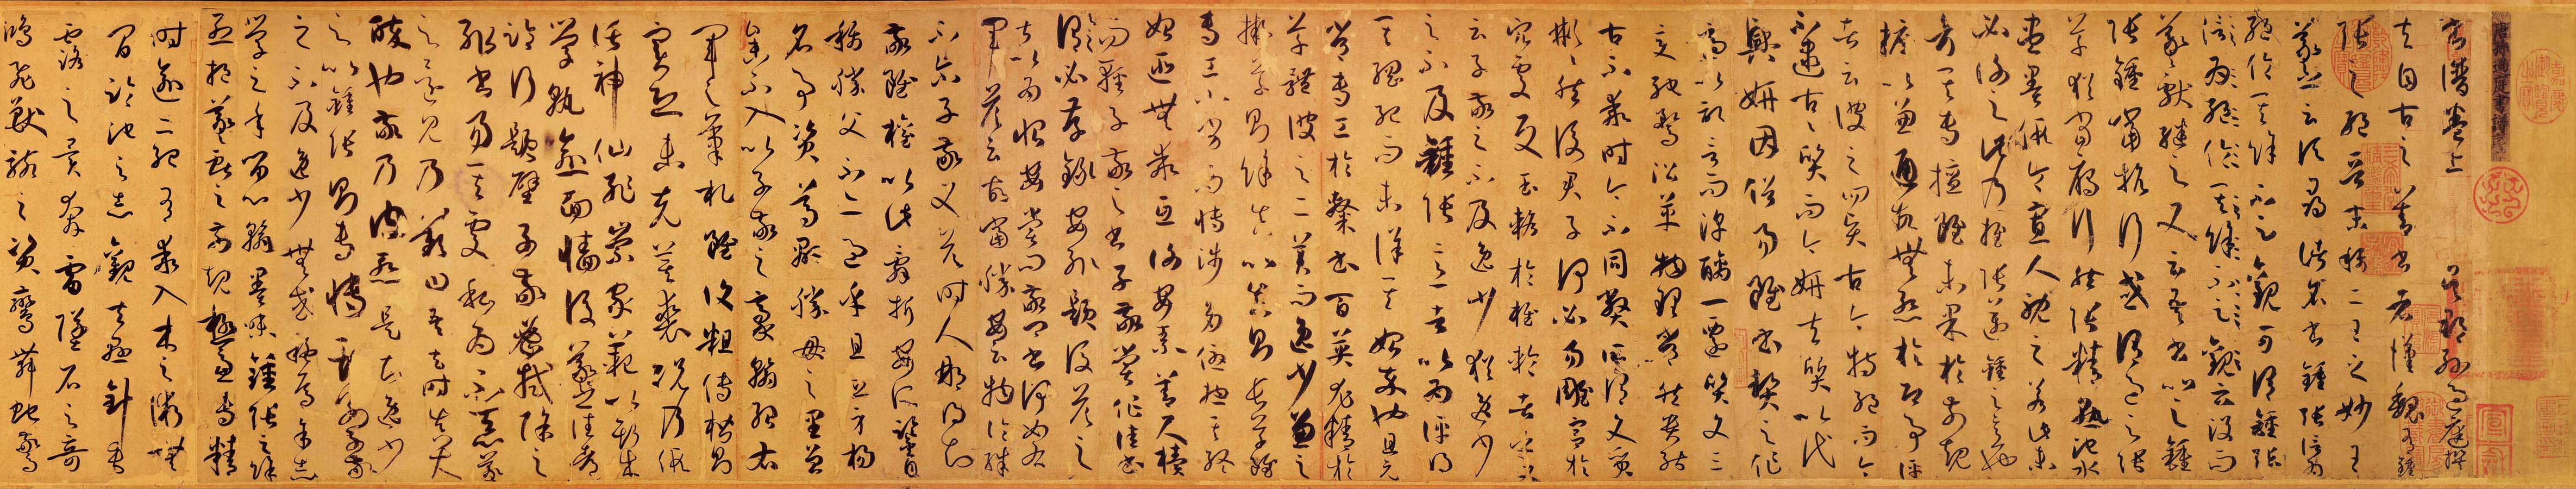 唐孫過庭書譜
書譜卷上 吳郡孫過庭撰
夫自古之善書者漢魏有鍾
張之絕晉末稱二王之妙王
羲之云頃尋諸名書鍾張信為
絕倫其餘不足觀可謂鍾張
信為絕倫其餘不足觀云沒而
羲獻繼之又云吾書比之鍾
張鍾當抗行或謂過之張
草猶當鴈行然張精熟池水
盡墨假令寡人耽之若此未
必謝之此乃推張邁鍾之意也
考其專擅雖未果於前規
摭以兼通故無慚於即事評
者云彼之四賢古今特絕而今
不逮古古質而今妍夫質以代
興妍因俗易雖書契之作
適以記言而淳醨一遷質文三
變馳騖沿革物理常然貴能
古不乖時今不同弊所謂文質
彬彬然後君子何必易雕宮於
穴處反玉輅於椎輪者乎又
云子敬之不及逸少猶逸少
之不及鍾張意者以為評得
其綱紀而未詳其始卒也且元
常專工於隸書百英尤精於
草體彼之二美而逸少兼之
擬草則餘真比真則長草雖
專工小劣而博涉多優總其終
始匪無乖互謝安素善尺牘
而輕子敬之書子敬嘗作佳書與之
謂必存錄安輒題後答之
甚以為恨安嘗問敬卿書何如右
軍答云故當勝安云物論殊
不爾子敬又答時人那得知
敬雖權以此辭折安所鑒自
稱勝父不亦過乎且立身揚
名事資尊顯勝母之里曾
參不入以子敬之豪翰紹右
軍之筆札雖復粗傳楷則
實恐未克箕裘況乃假
託神仙恥崇家範以斯成
學孰愈面牆後羲之往都
臨行題壁子敬密拭除之
輒書易其處私為不惡羲
之還見乃歎曰吾去時真大
醉也敬乃內慚是知逸少
之比鍾張則專博斯別子敬
之不及逸少無或疑焉余志
學之年留心翰墨味鍾張之餘
烈挹羲獻之前規極慮專精
時逾二紀有乖入木之術無
間臨池之志觀夫懸針垂
露之異奔雷墜石之奇
鴻飛獸駭之資鸞舞蛇驚